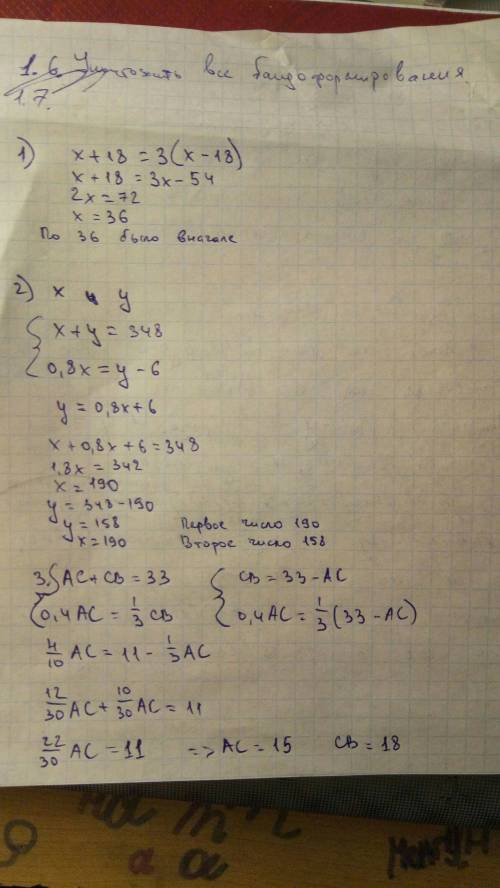 1.6. Уничтожить все бандформирования
1.7.
1) x + 18 = 3(x - 18)
x + 18 = 3x - 54
2x = 72
x = 36
По 36 было вначале
2) x и y
x + y = 348
0,8x = y - 6
y = 0,8x + 6
x + 0,8x + 6 = 348
1,8x = 342
x = 190
y = 348 - 190
y = 158 Первое число 190
x = 190 Второе число 158
3. { AC + CB = 33 { CB = 33 - AC
0,4AC = 1/3 CB 0,4AC = 1/3 (33 - AC)
4/10 AC = 11 - 1/3 AC
12/30 AC + 10/30 AC = 11
22/30 AC = 11 => AC = 15 CB = 18